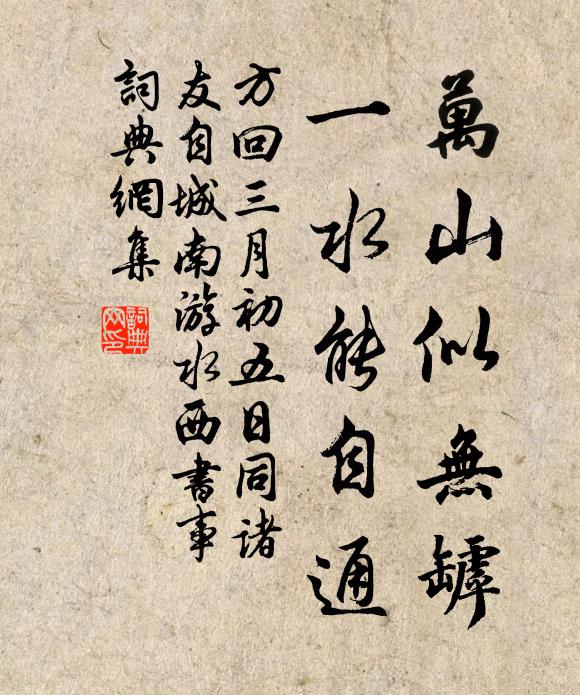 萬山似無罅
一水能自通
方回三月初五日同諸
友自城南游水西書事
詞典網集
詞典網印